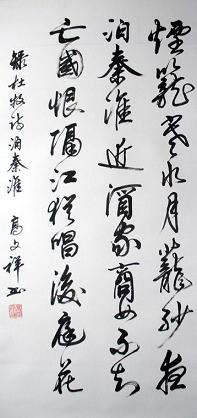 煙籠寒水月籠紗夜
泊秦淮近酒家商女不知
亡國恨隔江猶唱後庭花
錄杜牧詩泊秦淮 高文祥书